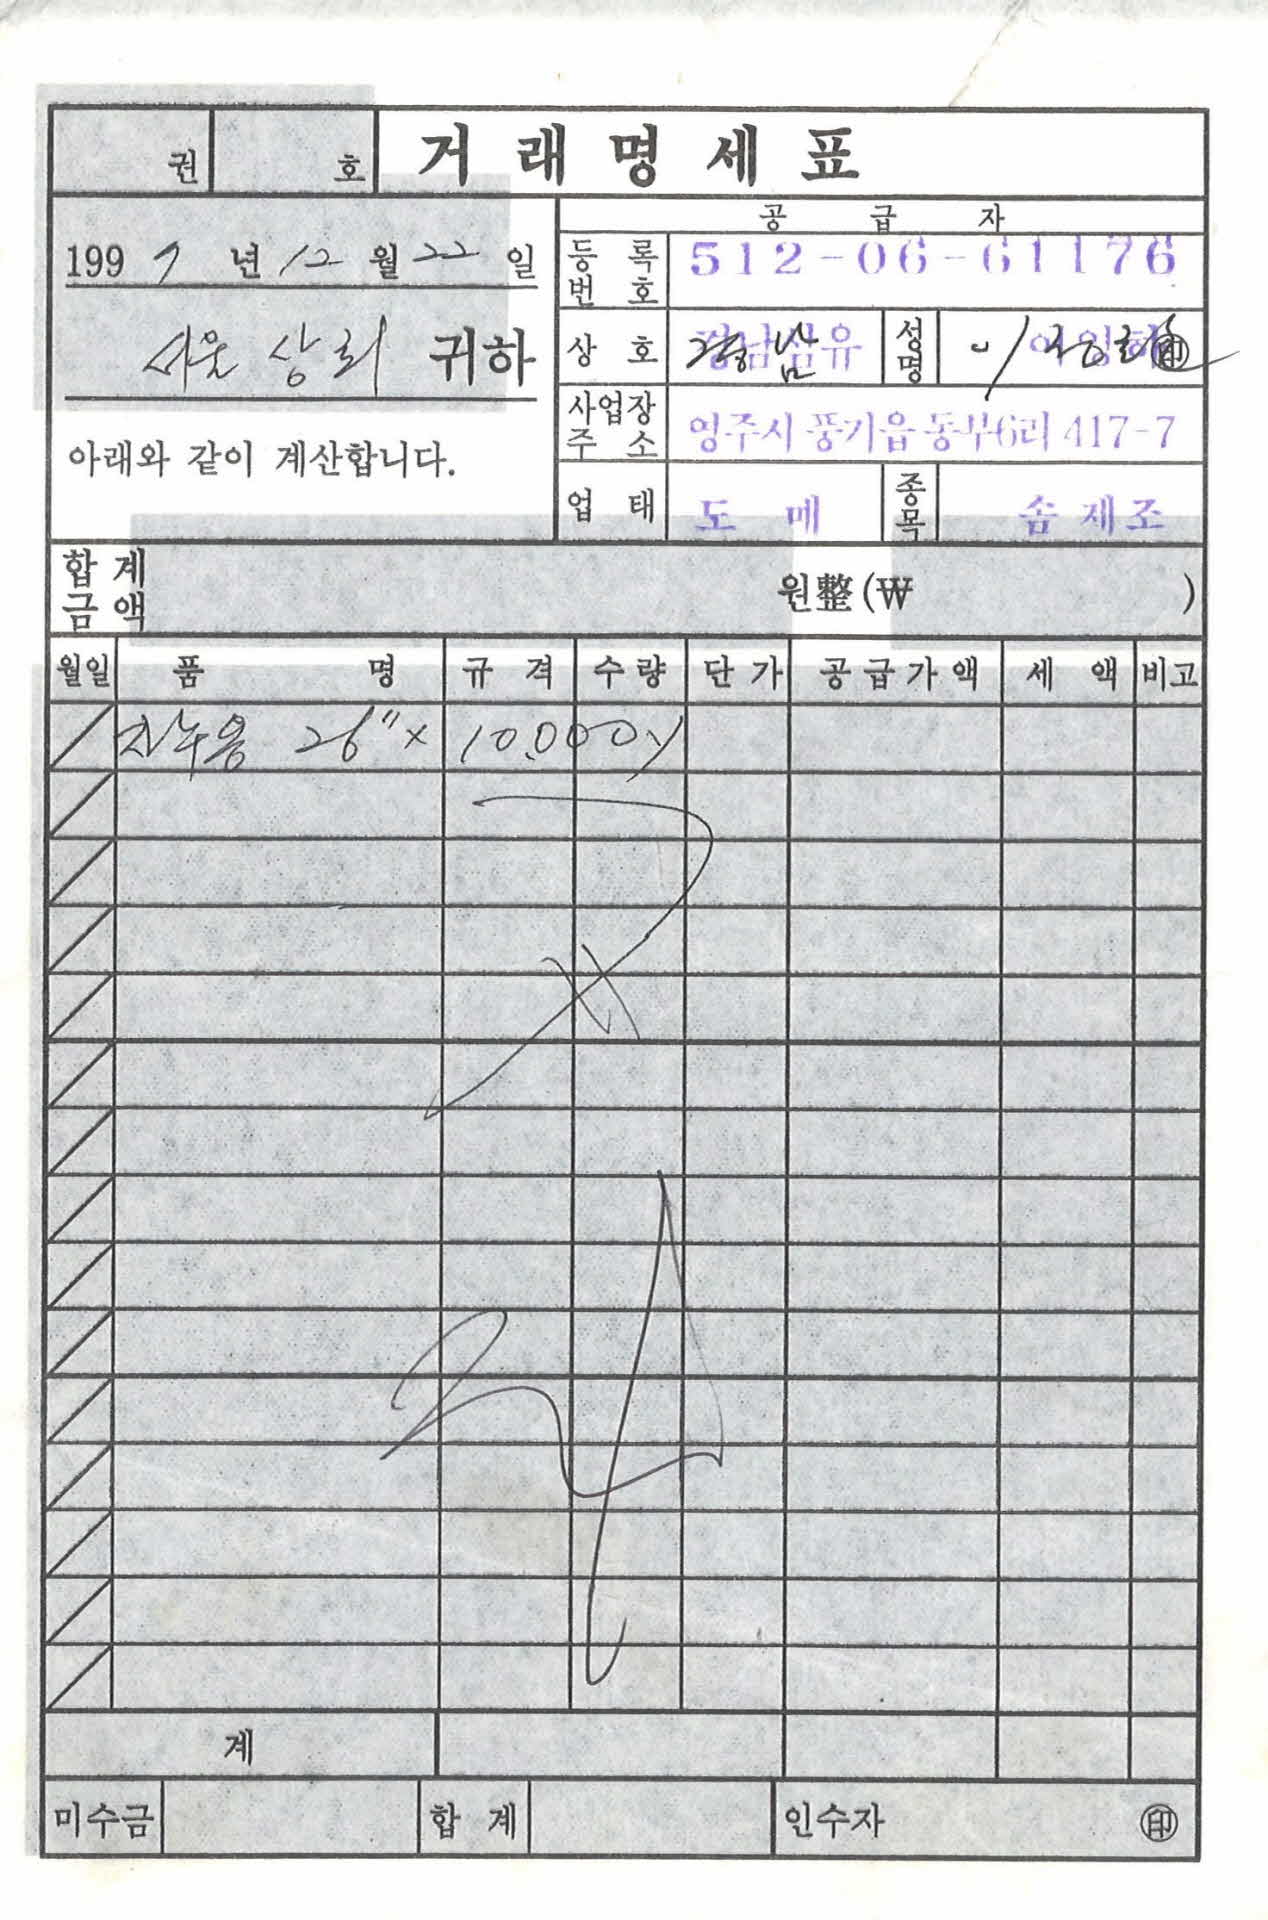 권 호 거래명세표
공급자
1997년 12월 22일
등록번호 512-06-61176
서울 상회 귀하
상호 경남섬유 성명 이영하 ㊞
경남
사업장주소 영주시 풍기읍 동부6리 417-7
아래와 같이 계산합니다.
업태 도매 종목 솜제조
합계금액 원整(₩ )
월일 품명 규격 수량 단가 공급가액 세액 비고
26" × 10,000y
계
미수금 합계 인수자 ㊞